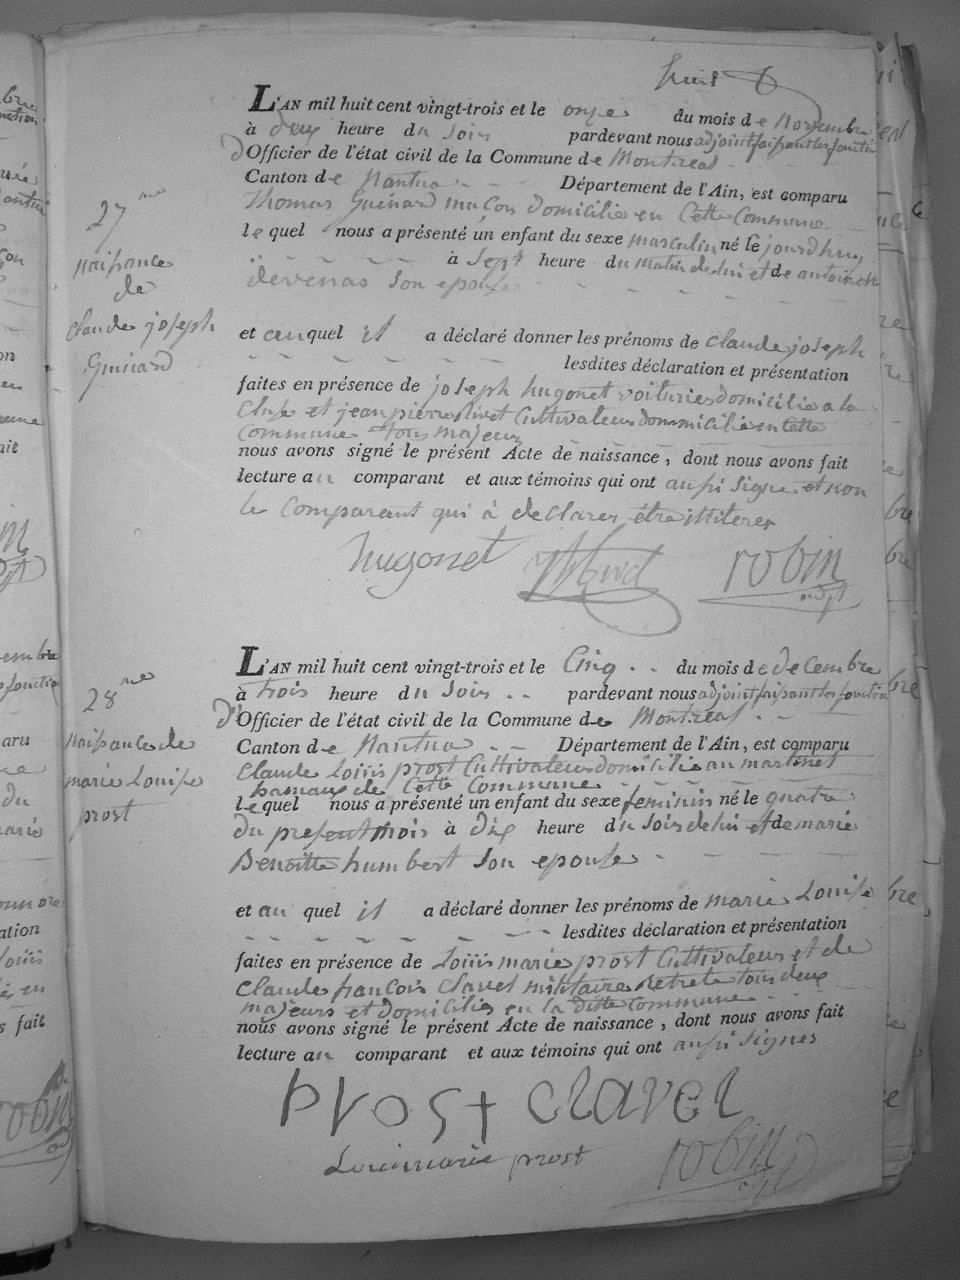 huit
27me
naissance
de
claude joseph
Guinard
L'AN mil huit cent vingt-trois et le onze du mois de Novembre
à deux heure du soir pardevant nous adjoint faisant les fonctions
d'Officier de l'état civil de la Commune de Montreal
Canton de Nantua Département de l'Ain, est comparu
Thomas Guinard maçon domicilié en Cette Commune
lequel nous a présenté un enfant du sexe masculin né le jourd'huy
à Sept heure du matin de lui et de
son epouse
et auquel il a déclaré donner les prénoms de claude joseph
lesdites déclaration et présentation
faites en présence de joseph hugonet voiturier domicilié a la
Cluse et jean pierre Cultivateur dommicilié en Cette
Commune tous majeurs
nous avons signé le présent Acte de naissance, dont nous avons fait
lecture au comparant et aux témoins qui ont aussi signe et non
le Comparant qui à declarer être illiterer
hugonet robin
adjt
28me
naissance de
marie Louise
prost
L'AN mil huit cent vingt-trois et le Cinq du mois de decembre
à trois heure du soir pardevant nous adjoint faisant les fonctions
d'Officier de l'état civil de la Commune de Montreal
Canton de Nantua Département de l'Ain, est comparu
Claude Loüis prost Cultivateur domicilié au martinet
hamau de Cette Commune
lequel nous a présenté un enfant du sexe feminin né le quatre
du present mois à dix heure du soir de lui et de marie
Benoitte humbert son epouse
et au quel il a déclaré donner les prénoms de marie Louise
lesdites déclaration et présentation
faites en présence de Loüis marie prost Cultivateur et de
Claude francois clavel militaire Retrete tous deux
majeurs et domiciliés en la ditte Commune
nous avons signé le présent Acte de naissance, dont nous avons fait
lecture au comparant et aux témoins qui ont aussi signés
prost clavel
Louimarie prost robin
adjt